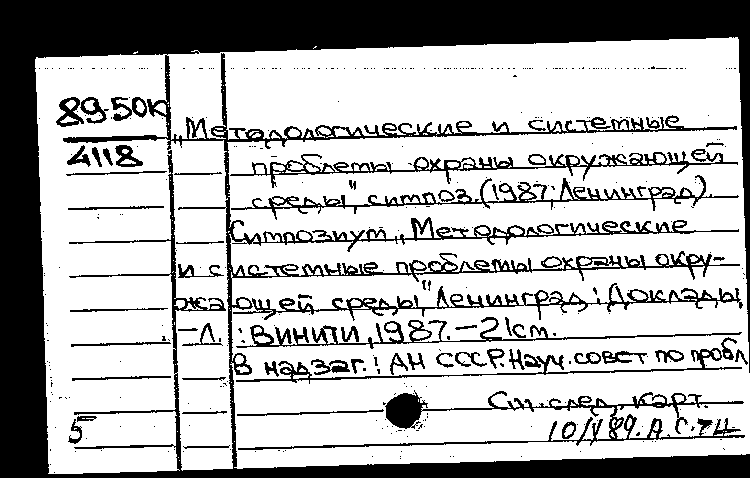 89-50К
4118
„Методологические и системные
проблемы охраны окружающей
среды", симпоз. (1987; Ленинград).
Симпозиум „Методологические
и системные проблемы охраны окру-
жающей среды", Ленинград: Доклады,
-Л. : ВИНИТИ, 1987. - 21 см.
В надзаг.: АН СССР. Науч. совет по пробл
См. след. карт.
5